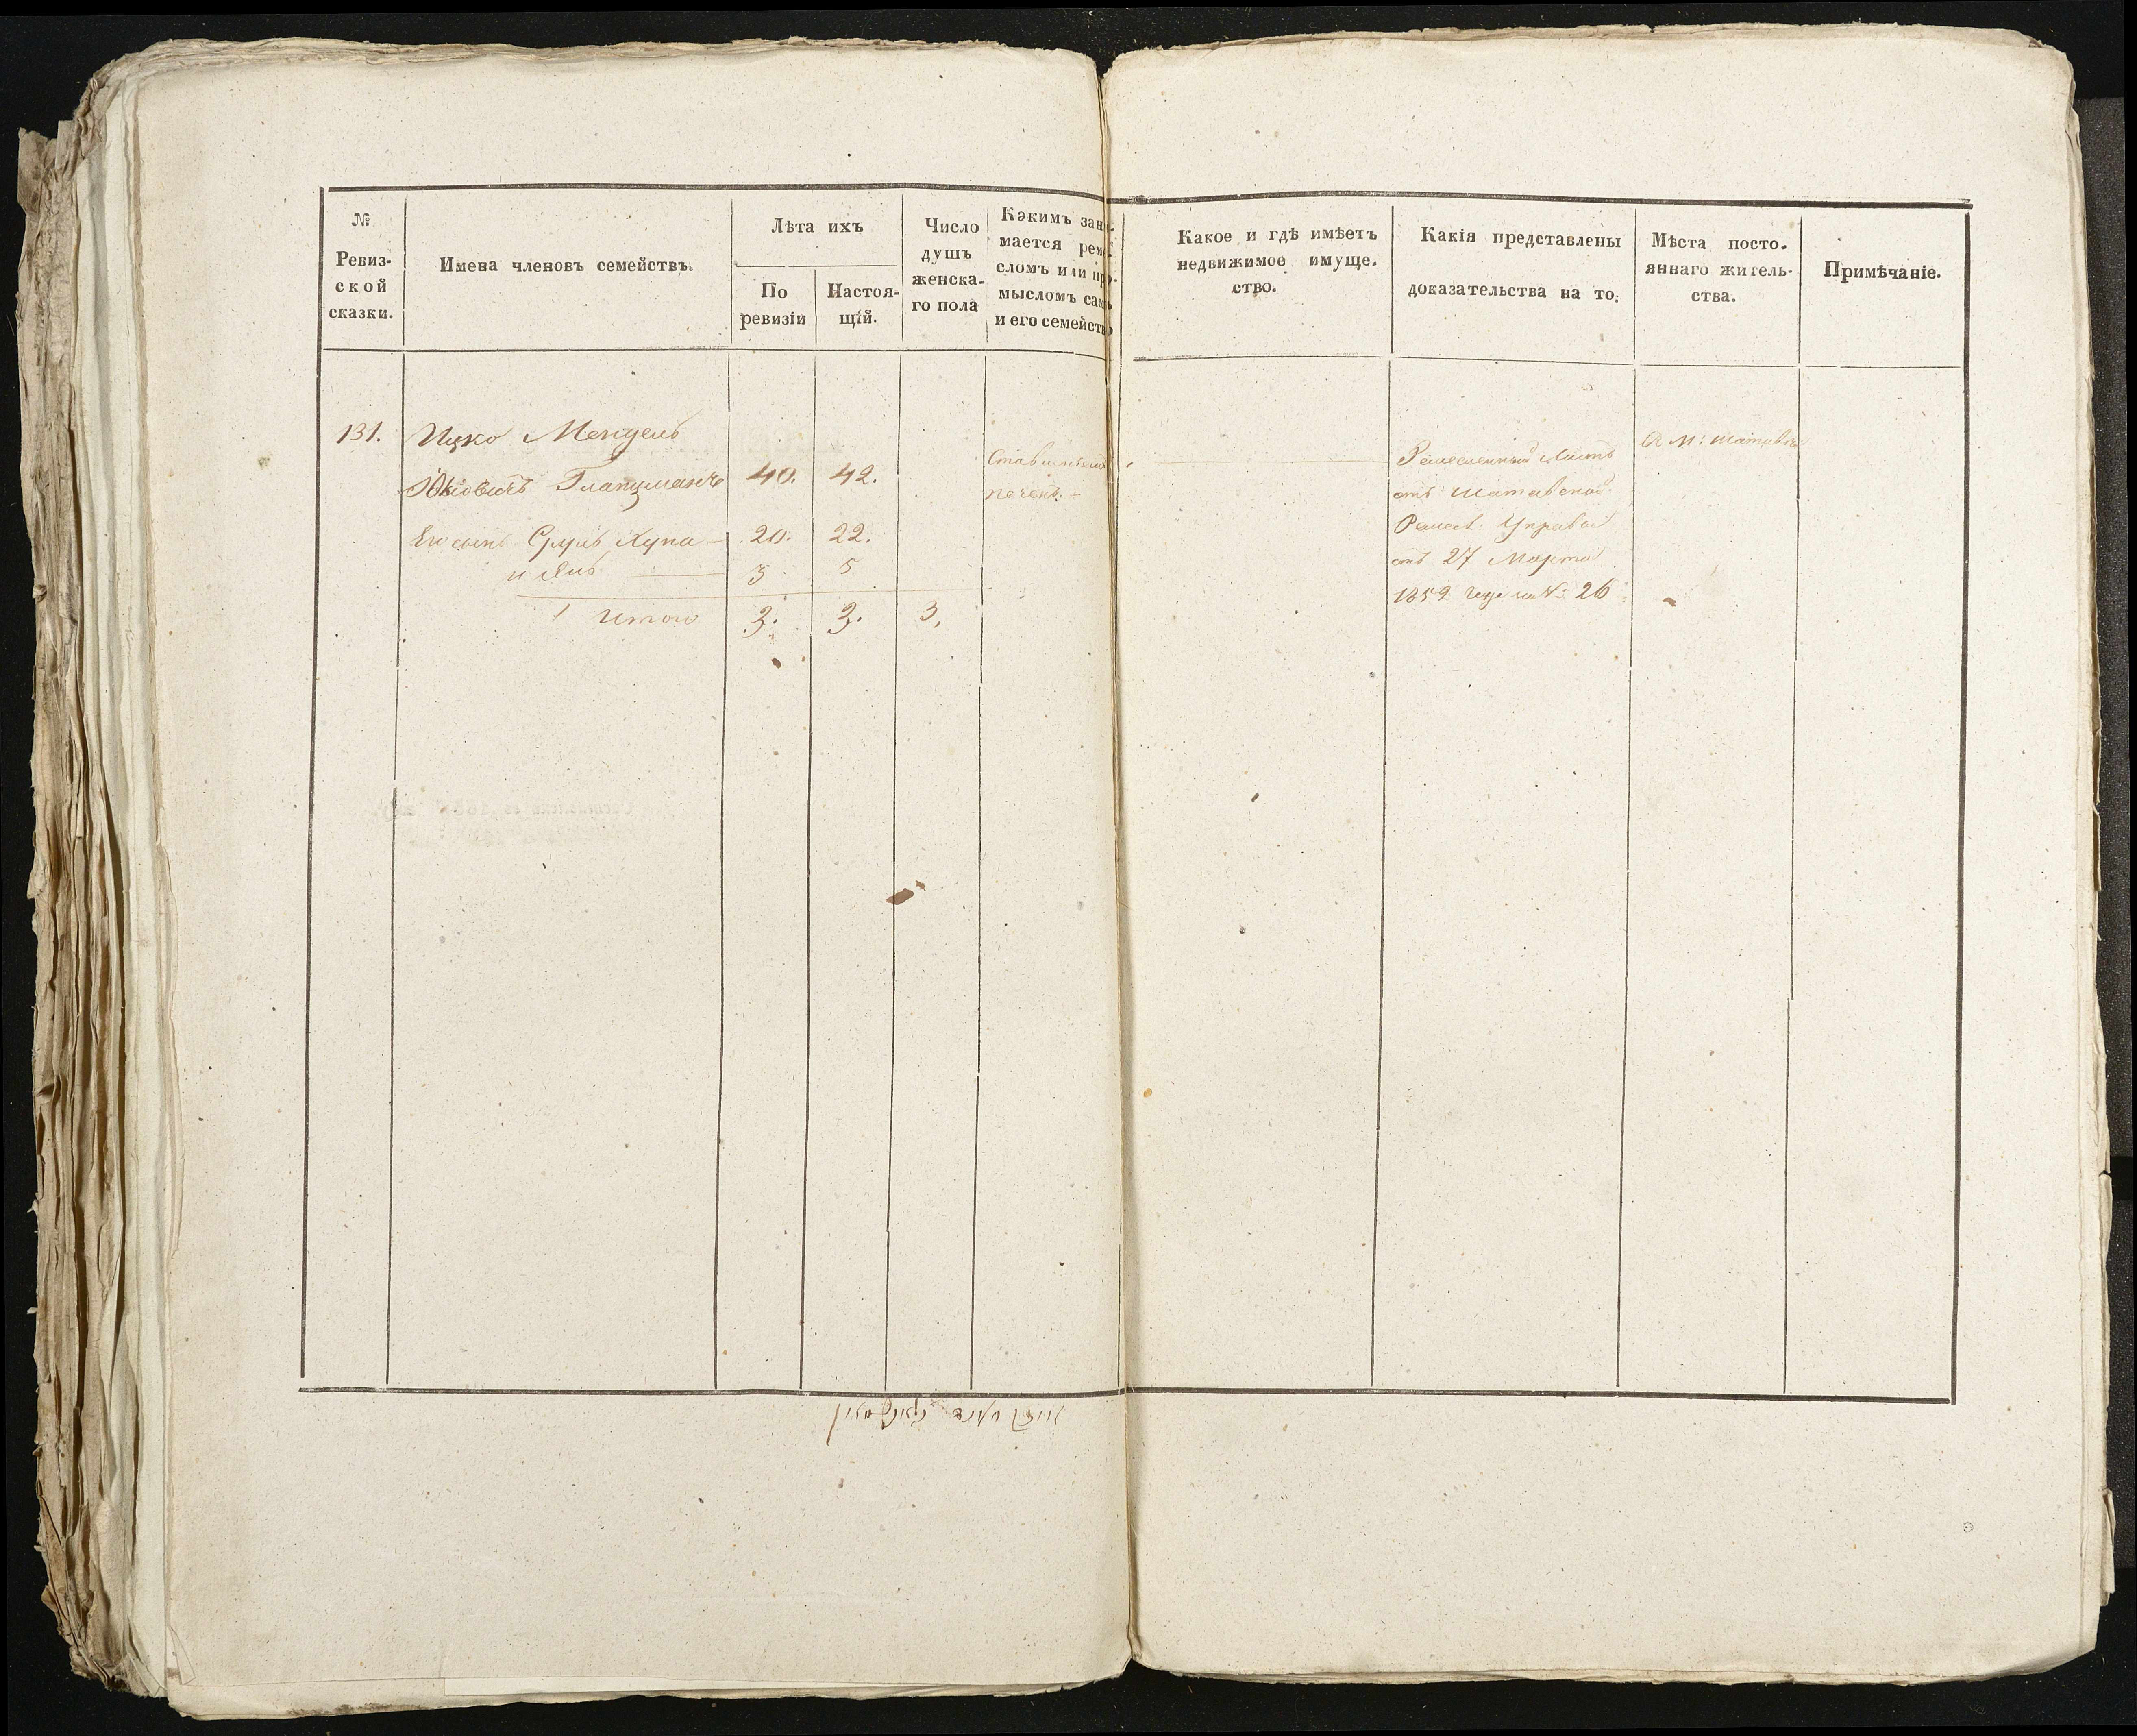 №
Ревиз-
ской
сказки.
Имена членовъ семействъ.
Лѣта ихъ
По
ревизіи
Настоя-
щій.
Число
душъ
женска-
го пола
Какимъ зани-
мается реме-
сломъ или про-
мысломъ самъ
и его семейство
Какое и гдѣ имѣетъ
недвижимое имуще-
ство.
Какія представлены
доказательства на то:
Мѣста посто-
яннаго житель-
ства.
Примѣчаніе.
131.
Ицко Мендель
Юковичъ Гланцманъ 40. 42.
Его сынъ Сруль 20. 22.
3 5
Итого 3. 3. 3.
печей.
Ремесленный Листъ
отъ Шатавской
Ремесл: Управы
отъ 27 Марта
1859 года за № 26
М: Шатавѣ